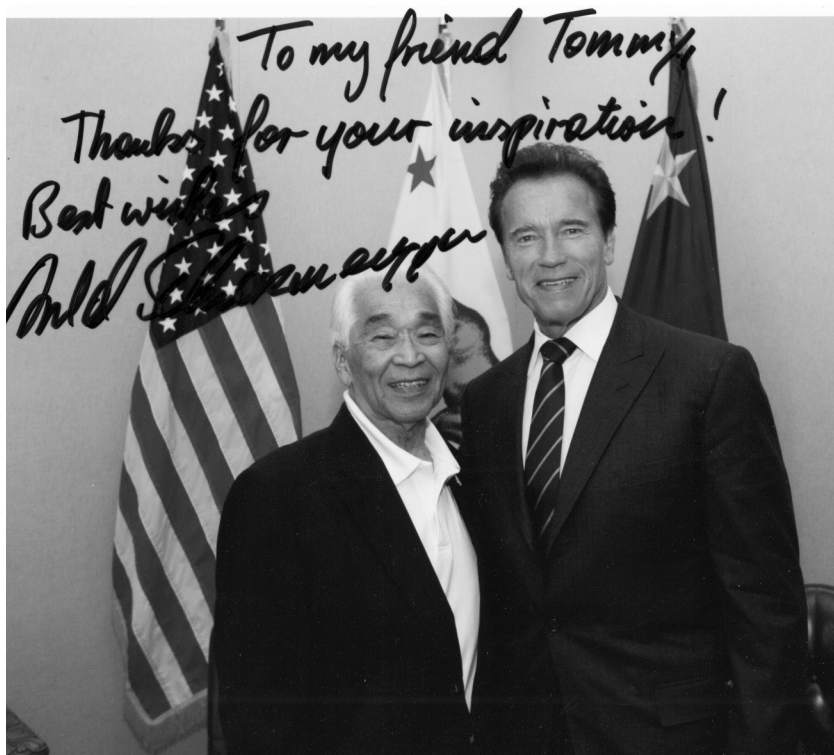 To my friend Tommy,
Thanks for your inspiration!
Best wishes
Arnold Schwarzenegger